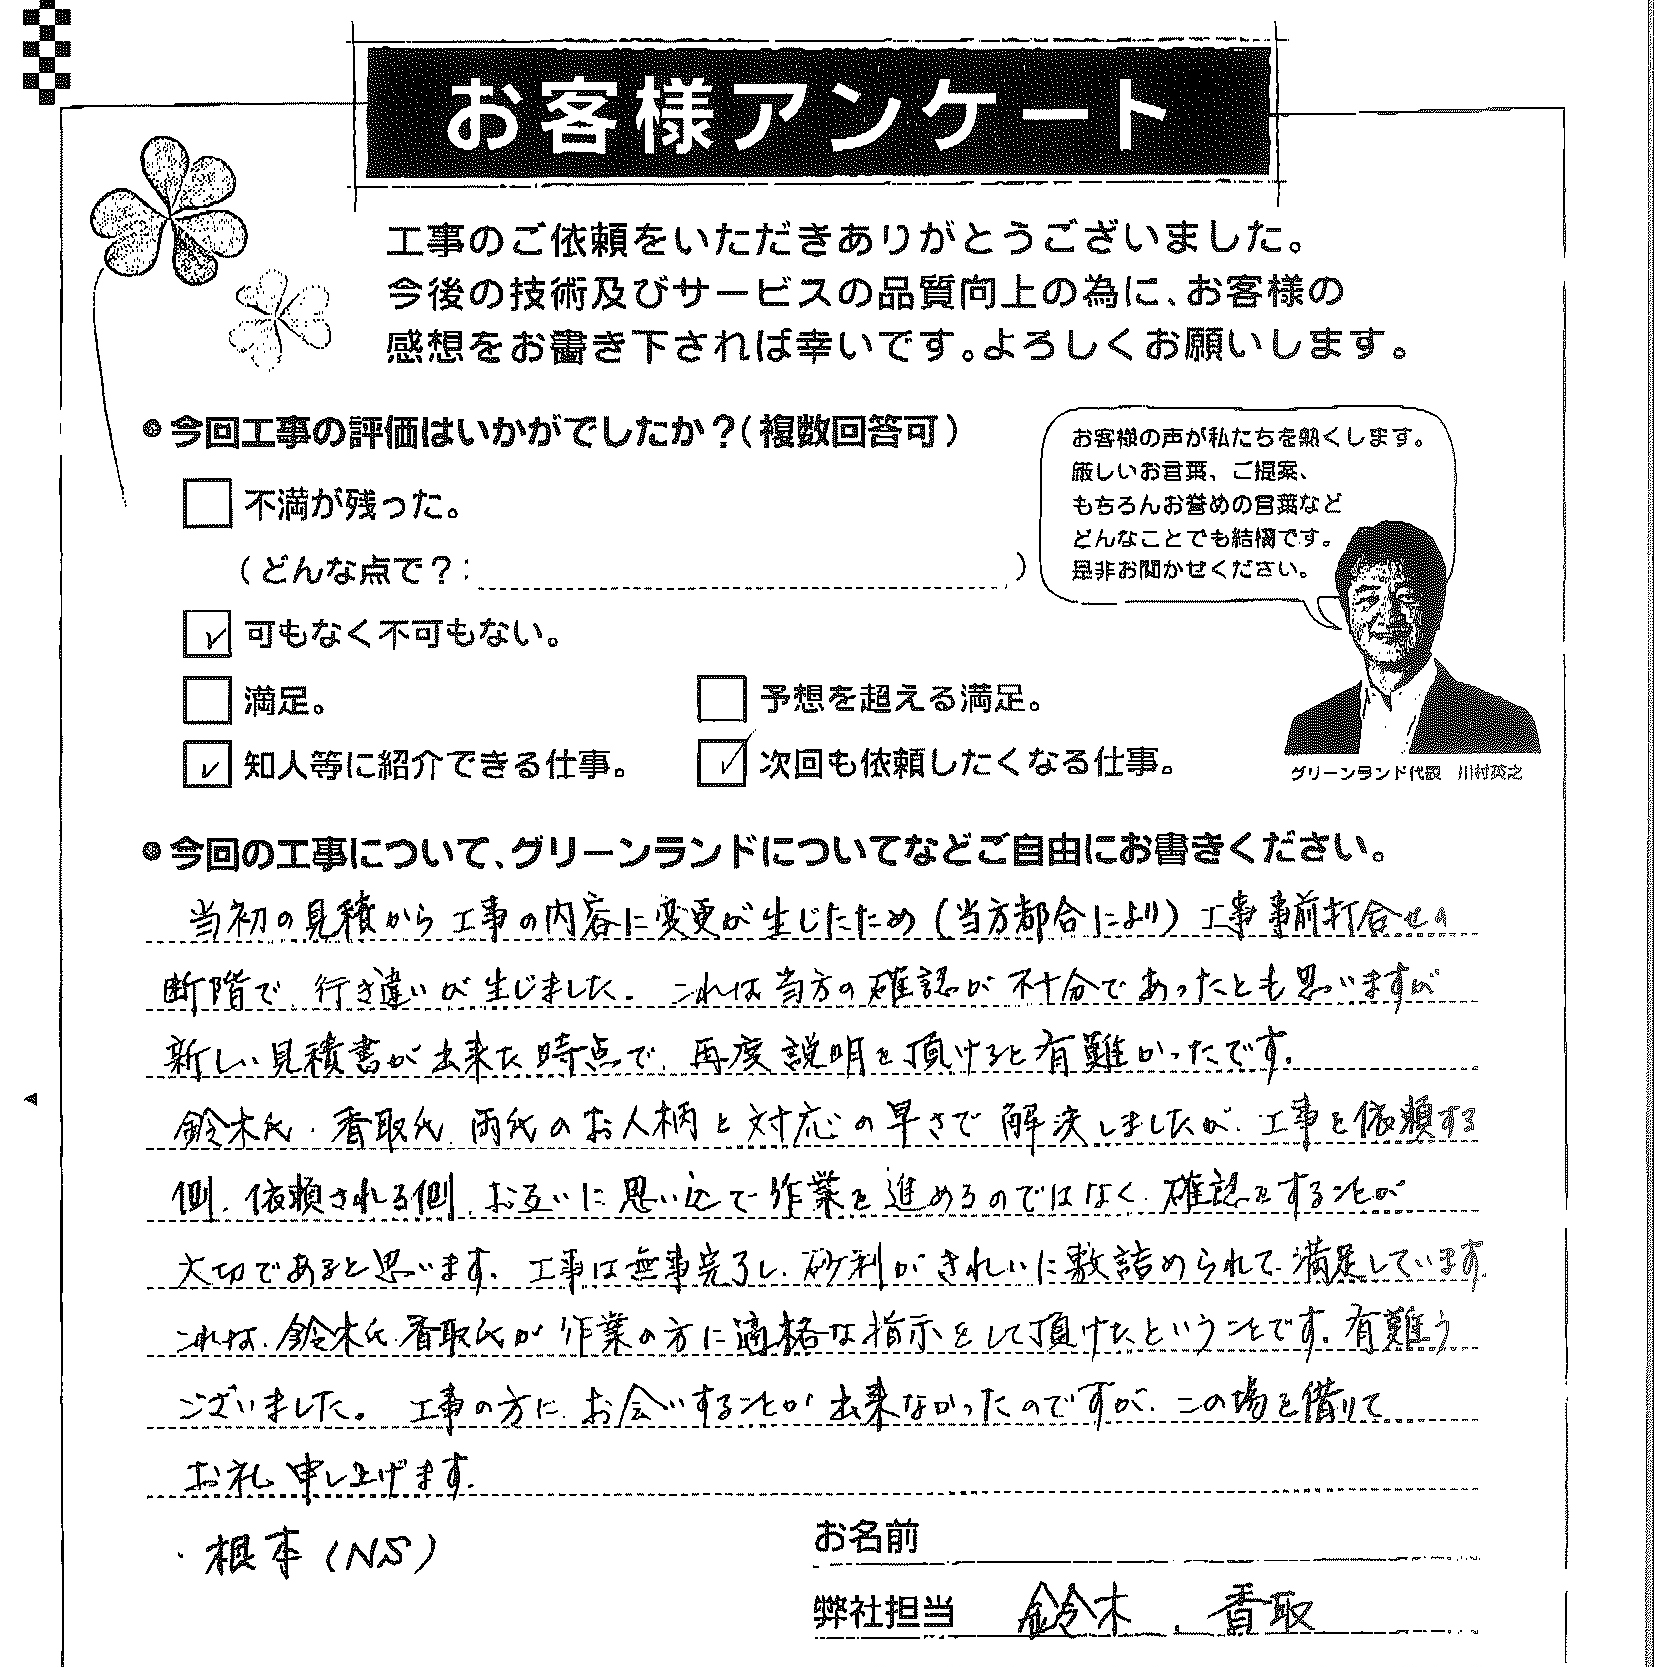 お客様アンケート
工事のご依頼をいただきありがとうございました。
今後の技術及びサービスの品質向上の為に、お客様の
感想をお書き下されば幸いです。よろしくお願いします。
●今回工事の評価はいかがでしたか？（複数回答可）
不満が残った。
（どんな点で？： ）
可もなく不可もない。
満足。
予想を超える満足。
知人等に紹介できる仕事。
次回も依頼したくなる仕事。
お客様の声が私たちを熱くします。
厳しいお言葉、ご提案、
もちろんお誉めの言葉など
どんなことでも結構です。
是非お聞かせください。
グリーンランド代表 川村英之
●今回の工事について、グリーンランドについてなどご自由にお書きください。
当初の見積から工事の内容に変更が生じたため（当方都合により）工事事前打合せの
断階で、行き違いが生じました。これは当方の確認が不十分であったとも思いますが
新しい見積書が出来た時点で、再度説明を頂けると有難かったです。
鈴木氏・香取氏、両氏のお人柄と対応の早さで解決しましたが、工事を依頼する
側、依頼される側、お互いに思い込で作業を進めるのではなく、確認をすることが
大切であると思います。工事は無事完了し、砂利がきれいに敷詰められて、満足しています。
これは、鈴木氏、香取氏が作業の方に適格な指示をして頂けたということです。有難う
ございました。工事の方に、お会いすることが出来なかったのですが、この場を借りて
お礼申し上げます。
・根本（NS）
お名前
弊社担当 鈴木、香取